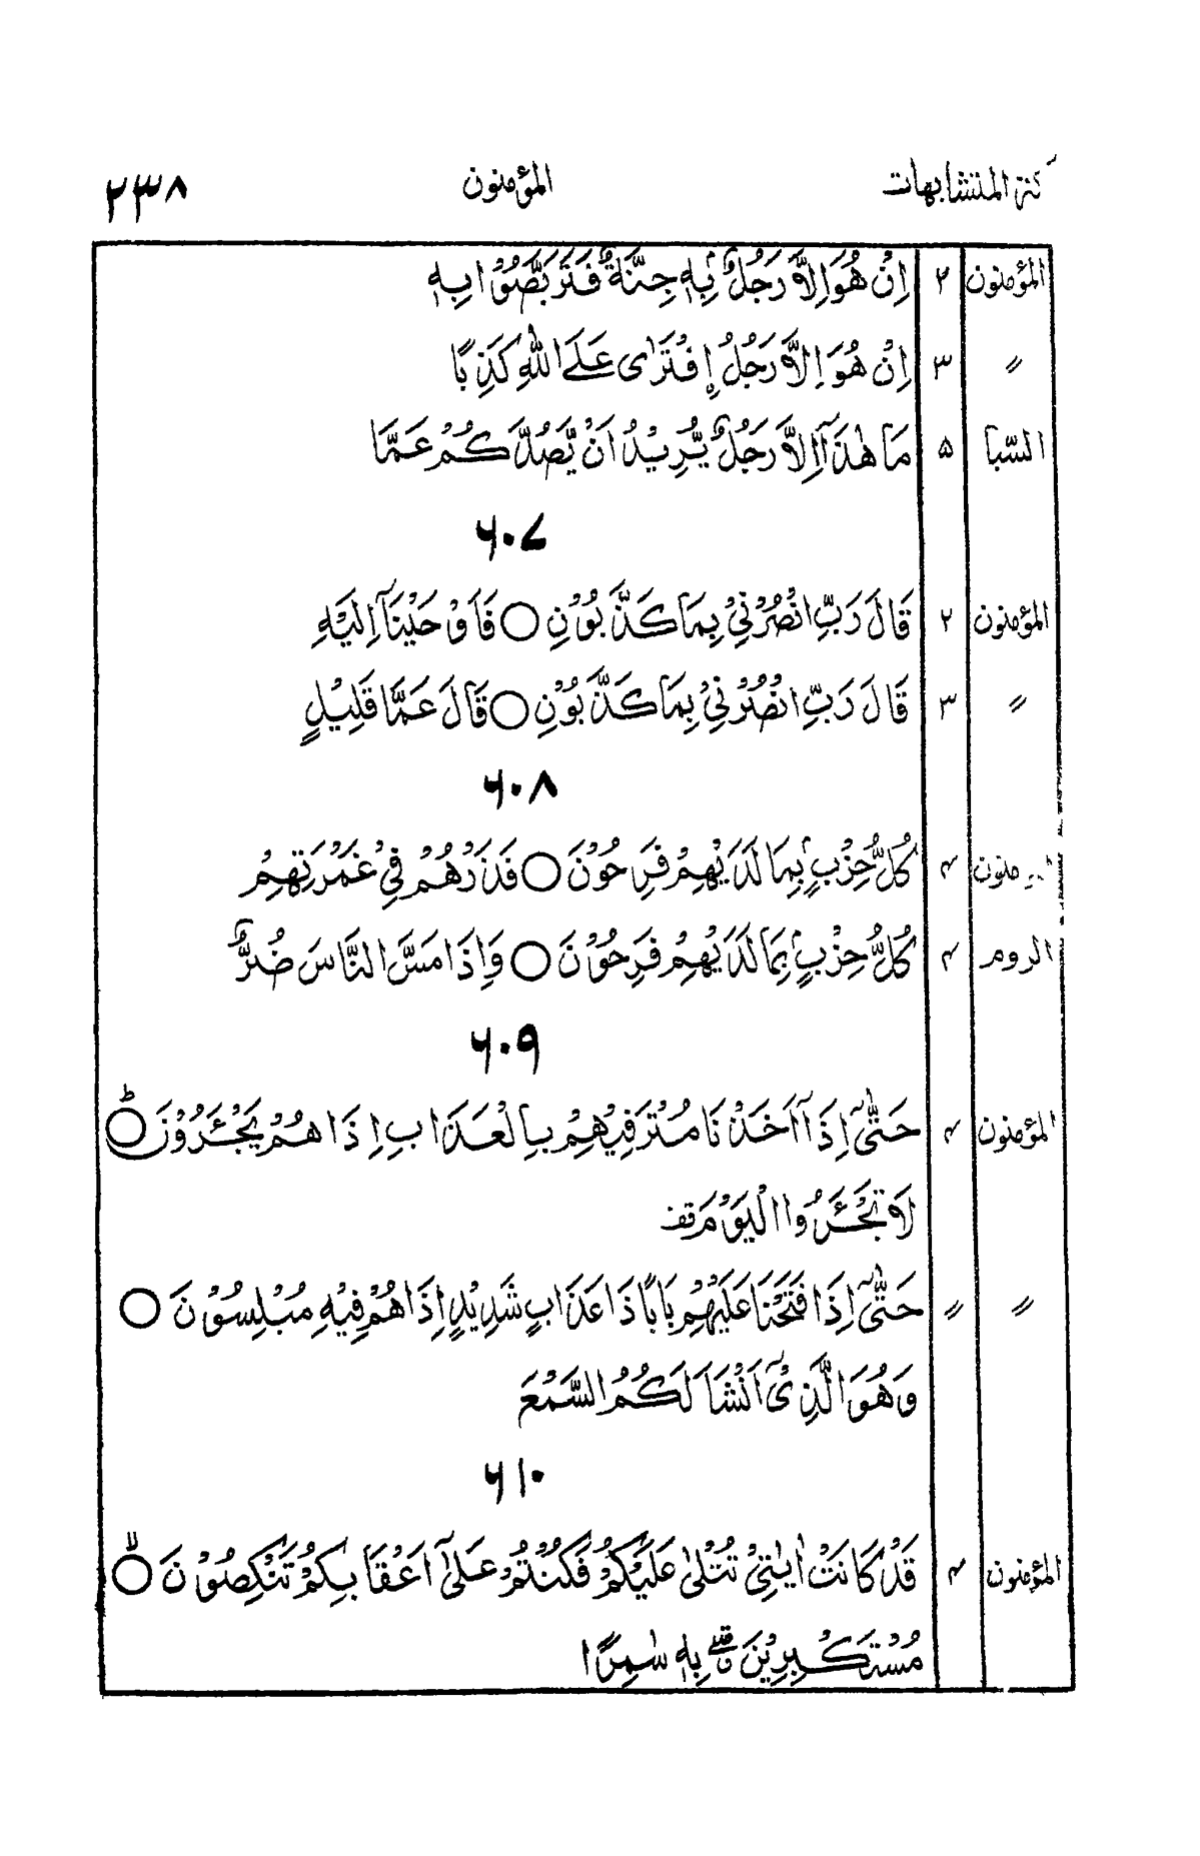 كنز المتشابهات المؤمنون ٢٣٨
المؤمنون ٢ اِنْ هُوَ اِلَّا رَجُلٌۢ بِهٖ جِنَّةٌ فَتَرَبَّصُوْا بِهٖ
〃 ٣ اِنْ هُوَ اِلَّا رَجُلُ ِۨافْتَرٰى عَلَى اللّٰهِ كَذِبًا
السّبا ۵ مَا هٰذَآ اِلَّا رَجُلٌ يُّرِيْدُ اَنْ يَّصُدَّكُمْ عَمَّا
۶۰۷
المؤمنون ٢ قَالَ رَبِّ انْصُرْنِيْ بِمَا كَذَّبُوْنِ ○ فَاَوْحَيْنَآ اِلَيْهِ
〃 ٣ قَالَ رَبِّ انْصُرْنِيْ بِمَا كَذَّبُوْنِ ○ قَالَ عَمَّا قَلِيْلٍ
۶۰۸
المؤمنون ۴ كُلُّ حِزْبٍۢ بِمَا لَدَيْهِمْ فَرِحُوْنَ ○ فَذَرْهُمْ فِيْ غَمْرَتِهِمْ
الروم ۴ كُلُّ حِزْبٍۢ بِمَا لَدَيْهِمْ فَرِحُوْنَ ○ وَاِذَا مَسَّ النَّاسَ ضُرٌّ
۶۰۹
المؤمنون ۴ حَتّٰىٓ اِذَآ اَخَذْنَا مُتْرَفِيْهِمْ بِالْعَذَابِ اِذَا هُمْ يَجْـَٔرُوْنَ ○ؕ
لَا تَجْـَٔرُوا الْيَوْمَ قف
〃 〃 حَتّٰىٓ اِذَا فَتَحْنَا عَلَيْهِمْ بَابًا ذَا عَذَابٍ شَدِيْدٍ اِذَا هُمْ فِيْهِ مُبْلِسُوْنَ ○
وَهُوَ الَّذِيْٓ اَنْشَاَ لَكُمُ السَّمْعَ
۶۱۰
المؤمنون ۴ قَدْ كَانَتْ اٰيٰتِيْ تُتْلٰى عَلَيْكُمْ فَكُنْتُمْ عَلٰٓى اَعْقَابِكُمْ تَنْكِصُوْنَ ○ۙ
مُسْتَكْبِرِيْنَ ۖق بِهٖ سٰمِرًا